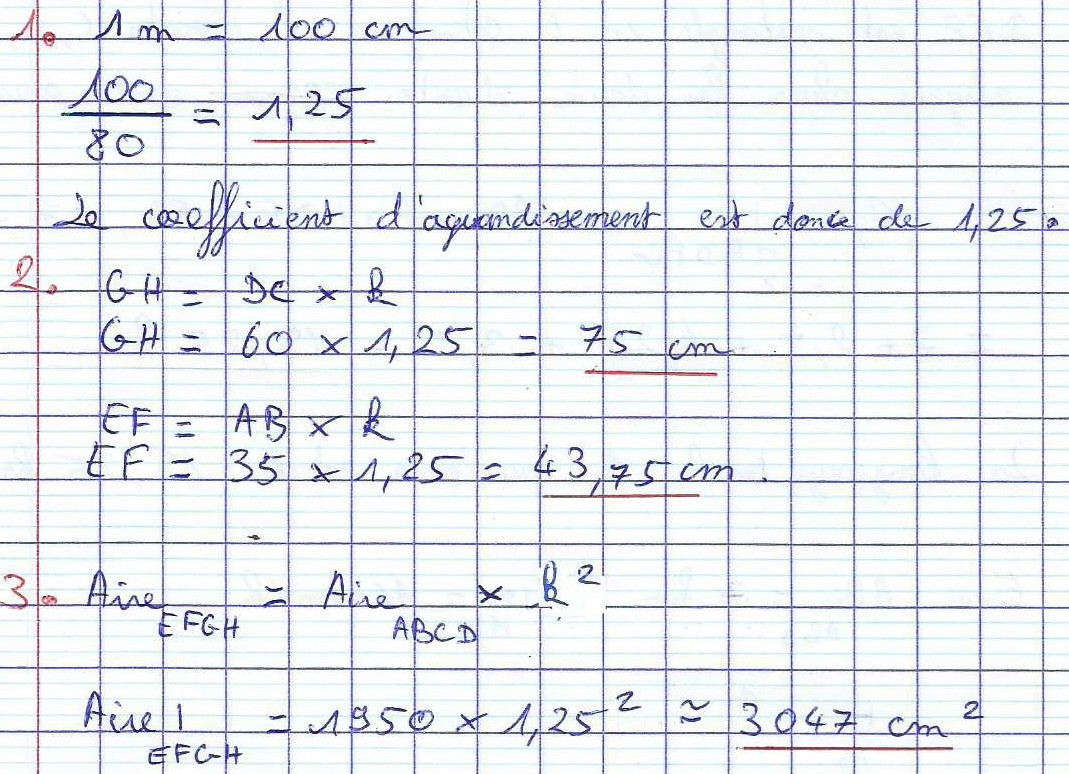 1. 1 m = 100 cm
100/80 = 1,25
Le coefficient d'agrandissement est donc de 1,25.
2. GH = DC × k
GH = 60 × 1,25 = 75 cm
EF = AB × k
EF = 35 × 1,25 = 43,75 cm.
3. Aire EFGH = Aire ABCD × k²
Aire EFGH = 1950 × 1,25² ≈ 3047 cm²